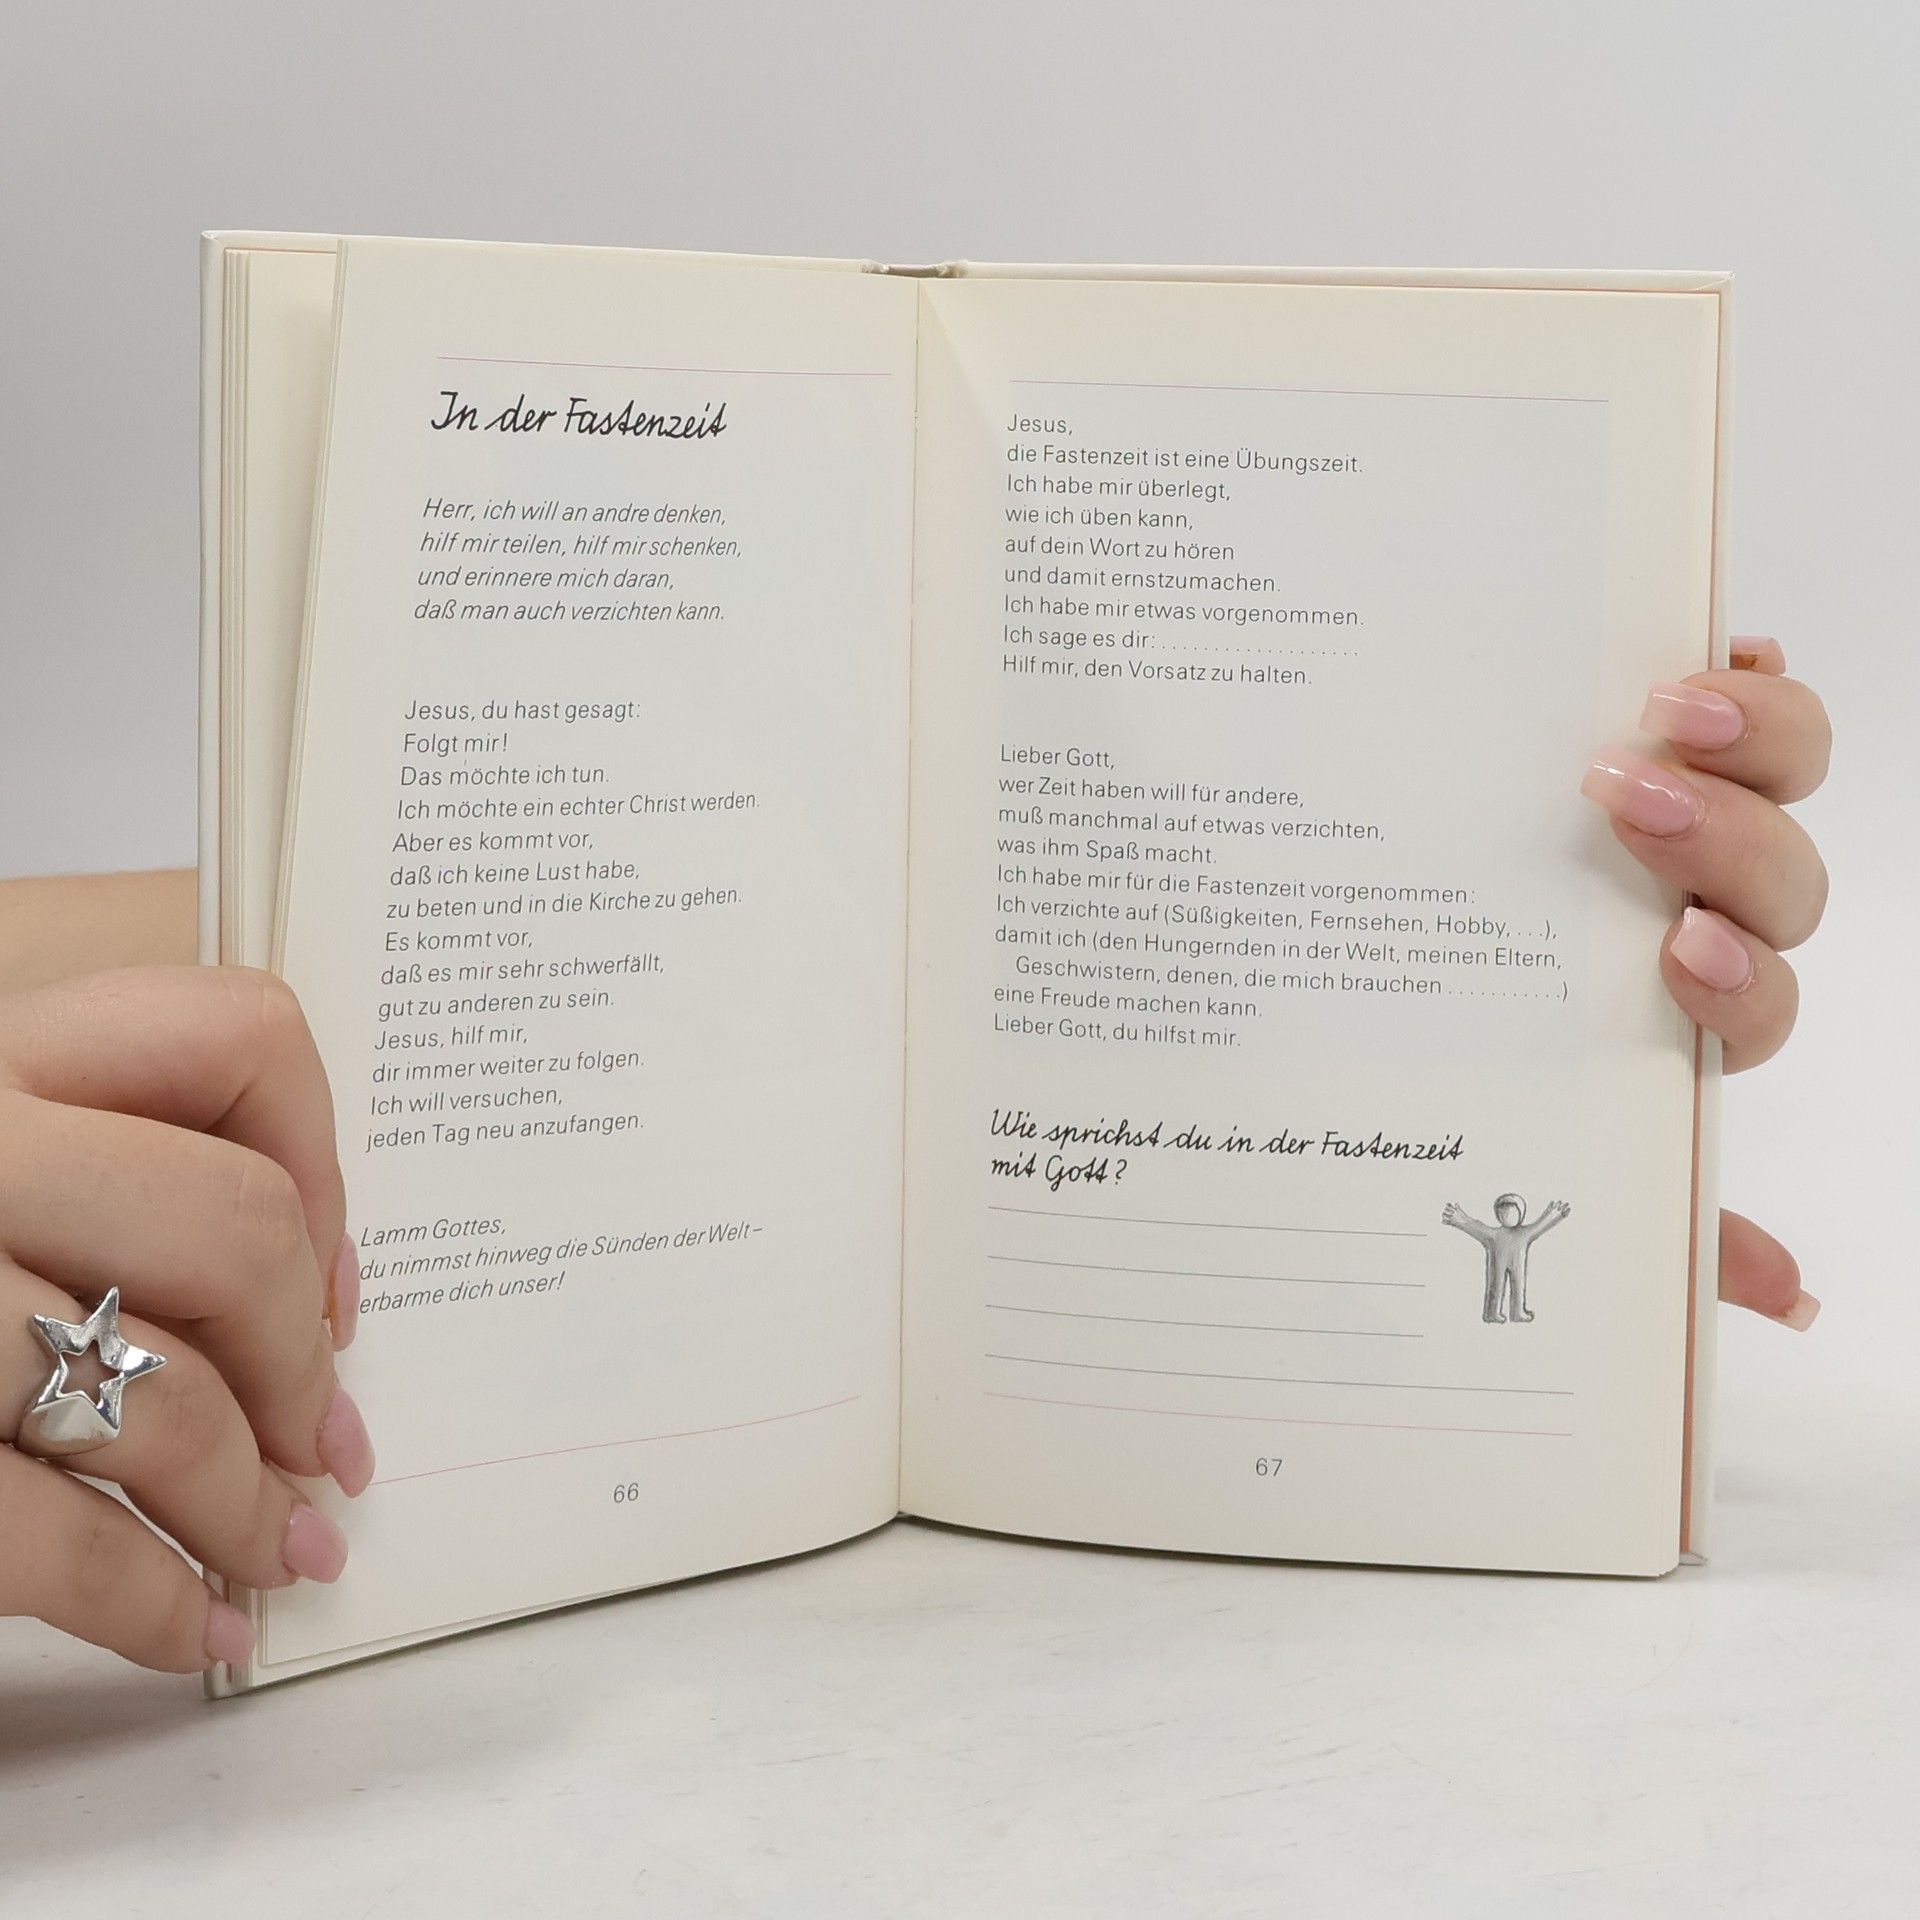 In der Fastenzeit
Herr, ich will an andre denken,
hilf mir teilen, hilf mir schenken,
und erinnere mich daran,
daß man auch verzichten kann.
Jesus, du hast gesagt:
Folgt mir!
Das möchte ich tun.
Ich möchte ein echter Christ werden.
Aber es kommt vor,
daß ich keine Lust habe,
zu beten und in die Kirche zu gehen.
Es kommt vor,
daß es mir sehr schwerfällt,
gut zu anderen zu sein.
Jesus, hilf mir,
dir immer weiter zu folgen.
Ich will versuchen,
jeden Tag neu anzufangen.
Lamm Gottes,
du nimmst hinweg die Sünden der Welt –
erbarme dich unser!
66
Jesus,
die Fastenzeit ist eine Übungszeit.
Ich habe mir überlegt,
wie ich üben kann,
auf dein Wort zu hören
und damit ernstzumachen.
Ich habe mir etwas vorgenommen.
Ich sage es dir: . . . . . . . . . . . . . . . . . . . . .
Hilf mir, den Vorsatz zu halten.
Lieber Gott,
wer Zeit haben will für andere,
muß manchmal auf etwas verzichten,
was ihm Spaß macht.
Ich habe mir für die Fastenzeit vorgenommen:
Ich verzichte auf (Süßigkeiten, Fernsehen, Hobby, . . .),
damit ich (den Hungernden in der Welt, meinen Eltern,
Geschwistern, denen, die mich brauchen . . . . . . . . . . .)
eine Freude machen kann.
Lieber Gott, du hilfst mir.
Wie sprichst du in der Fastenzeit
mit Gott?
67